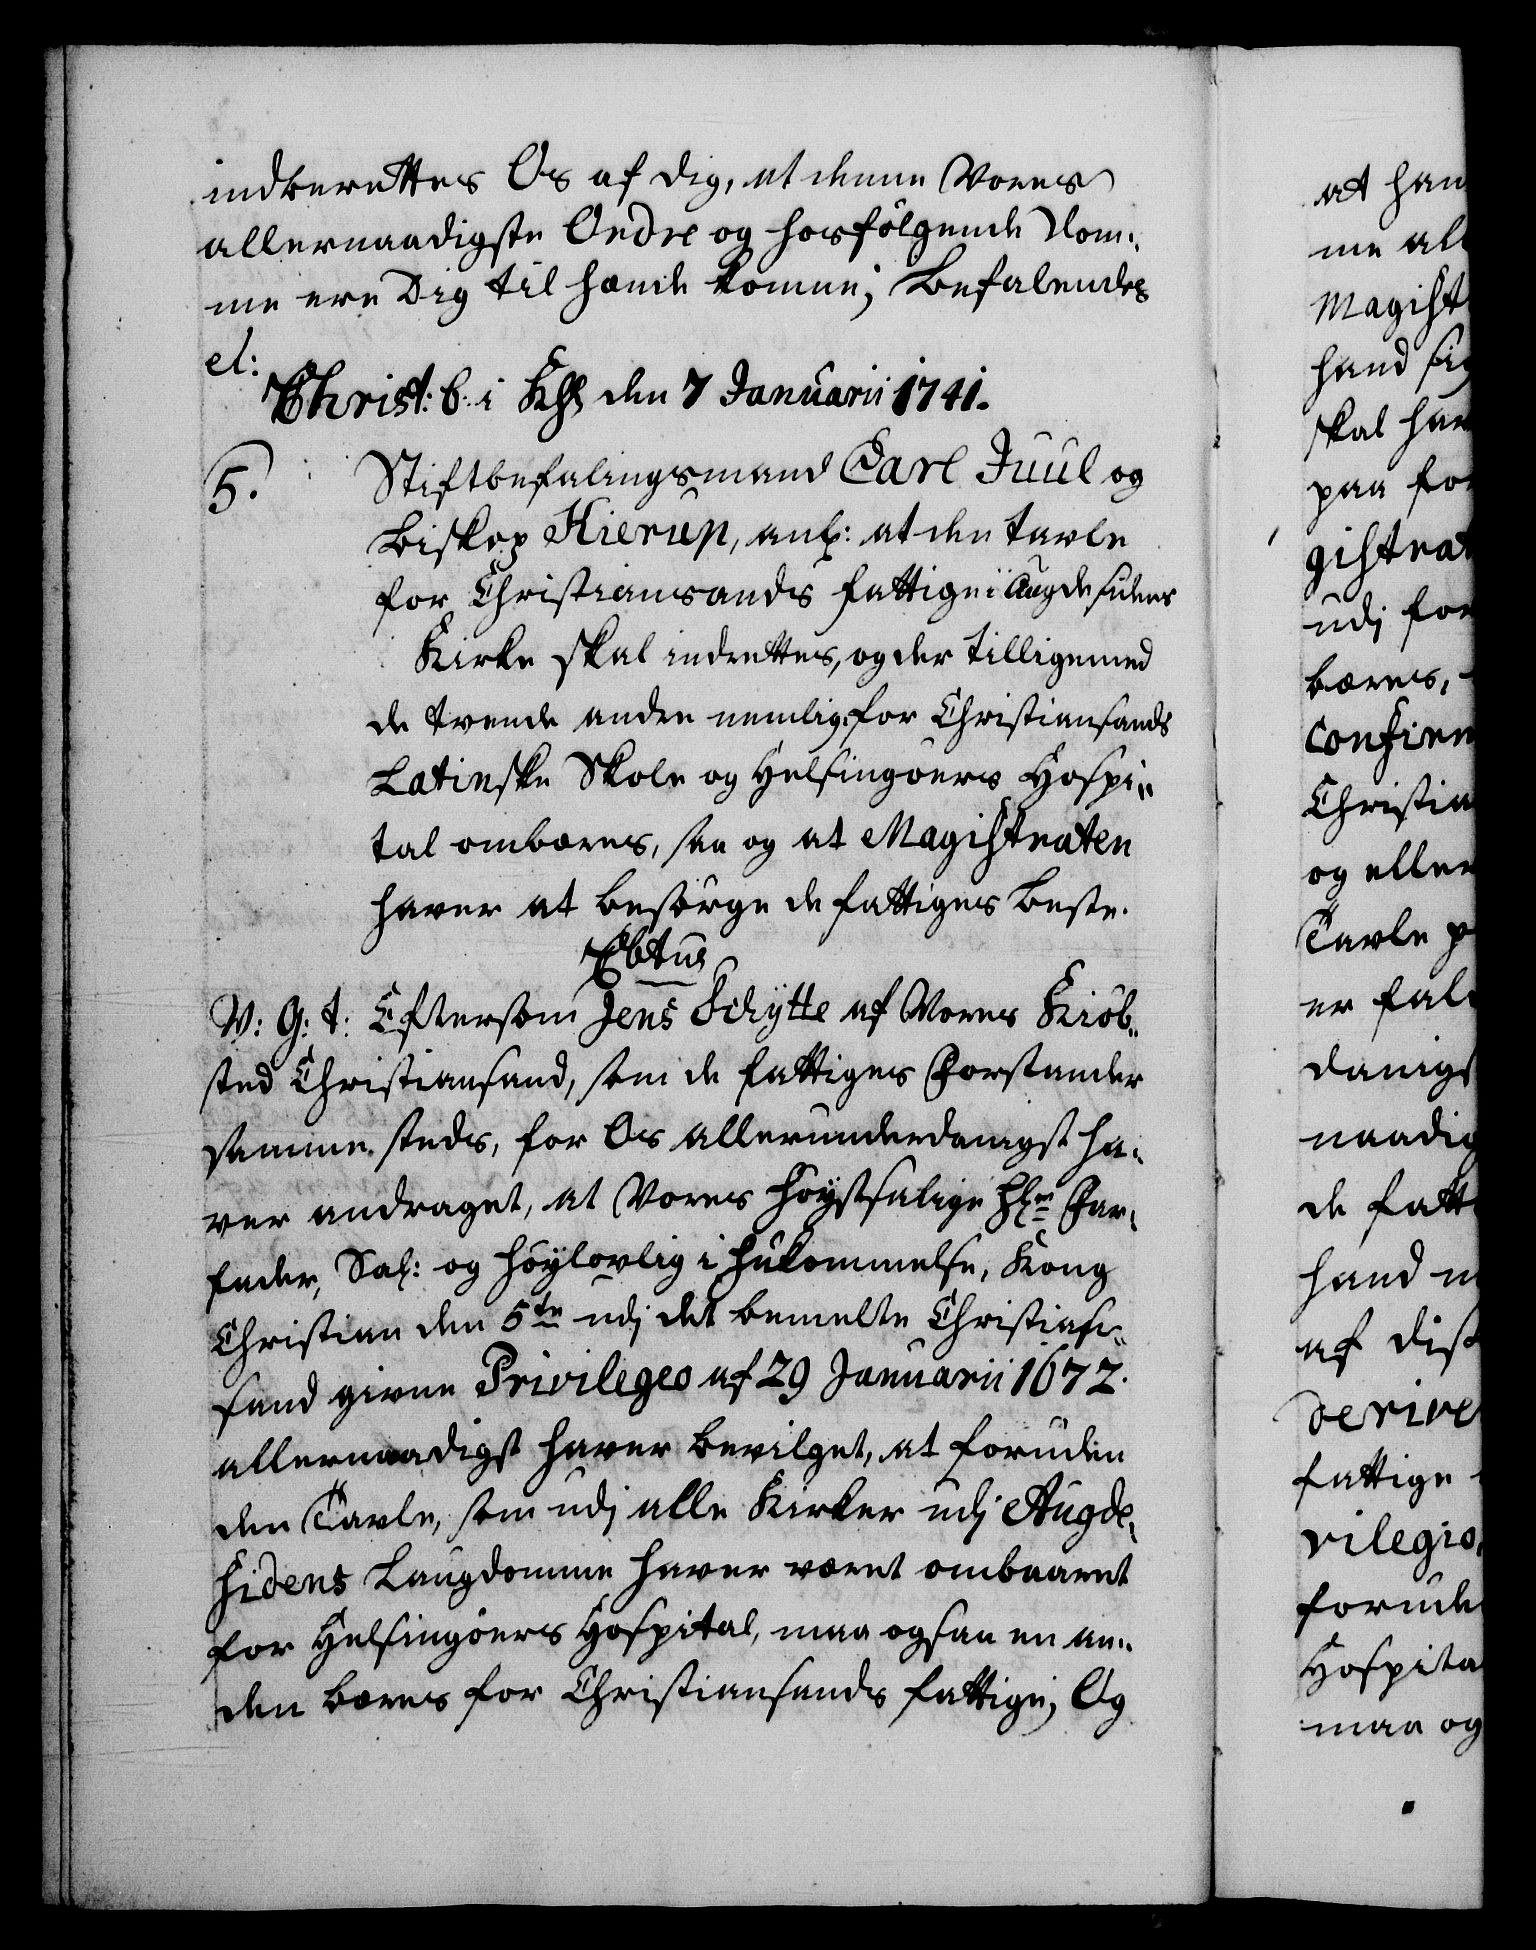 indberettes Os af dig, at denne Vores
allernaadigste Ordre og hosfölgende Dom-
me ere Dig til hænde komne; Befalendes
et:
Christ: b: i Kh den 7 Januarii 1741.
5. Stiftbefalingsmand Carl Juul og
Biskop Kierup, anl: at den Tavle
for Christiansands fattige i Augdesidens
Kirke skal indrettes, og der tilligemed
de tvende andre nemlig for Christiansands
Latinske Skole og Helsingöers Hospi-
tal ombæres, saa og at Magistraten
haver at besörge de fattiges Beste.
V: G: t: Eftersom Jens Schytte af Vores Kiöb-
sted Christiansand, som de fattiges Forstander
sammesteds, for Os allerunderdanigst ha-
ver andraget, at Vores Höystsalige Hr Far-
fader, Sal: og höylovlig i hukommelse, Kong
Christian den 5te udj det bemelte Christian-
sand givne Privileges af 29 Januarii 1672.
allernaadigst haver bevilget, at foruden
den Tavle, som udj alle Kirker udj Augde-
sidens Laugdomme haver været ombaaret
for Helsingöers Hospital, maa ogsaa en an-
den bæres for Christiansands fattige; Og
at han
me all
Magist
hand sig
skal hav
paa for
gistrat
udj for
bæres,
confirm
Christia
og eller
Tavle p
er fal
danigs
naadig
de fatt
hand
af dis
derive
fattige
vilegio,
forude
Hospita
maa og